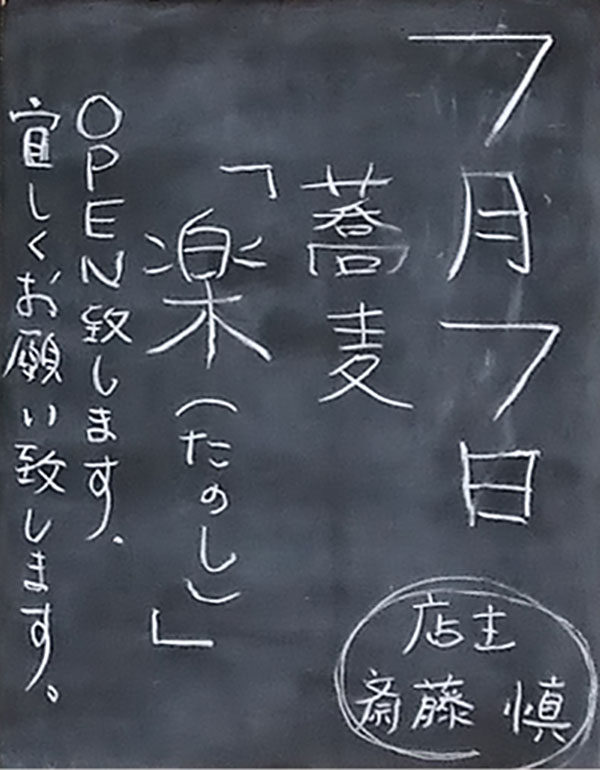 7月7日
蕎麦
「楽(たのし)」
OPEN致します.
宜しくお願い致します。
店主
斎藤 慎